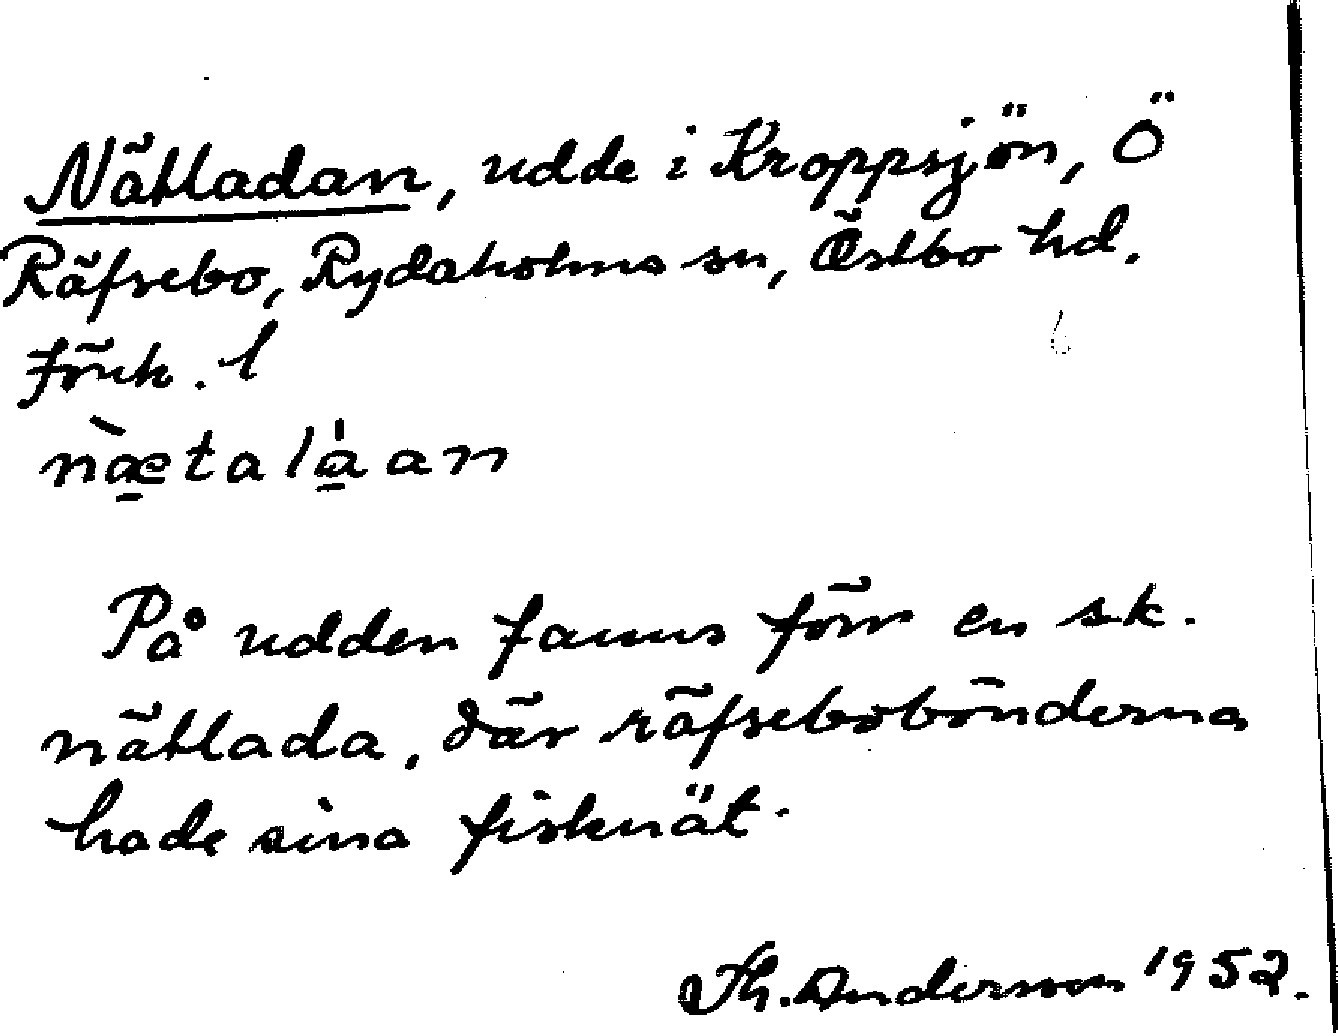 Nätladan, udde i Kroppsjön, Ö
Räfsebo, Rydaholms sn, Östbo hd.
Jönk. l
næ̠̀talȧ̠an
På udden fanns förr en s.k.
nätlada, där räfsebobönderna
hade sina fisknät.
Th. Anderson 1952.